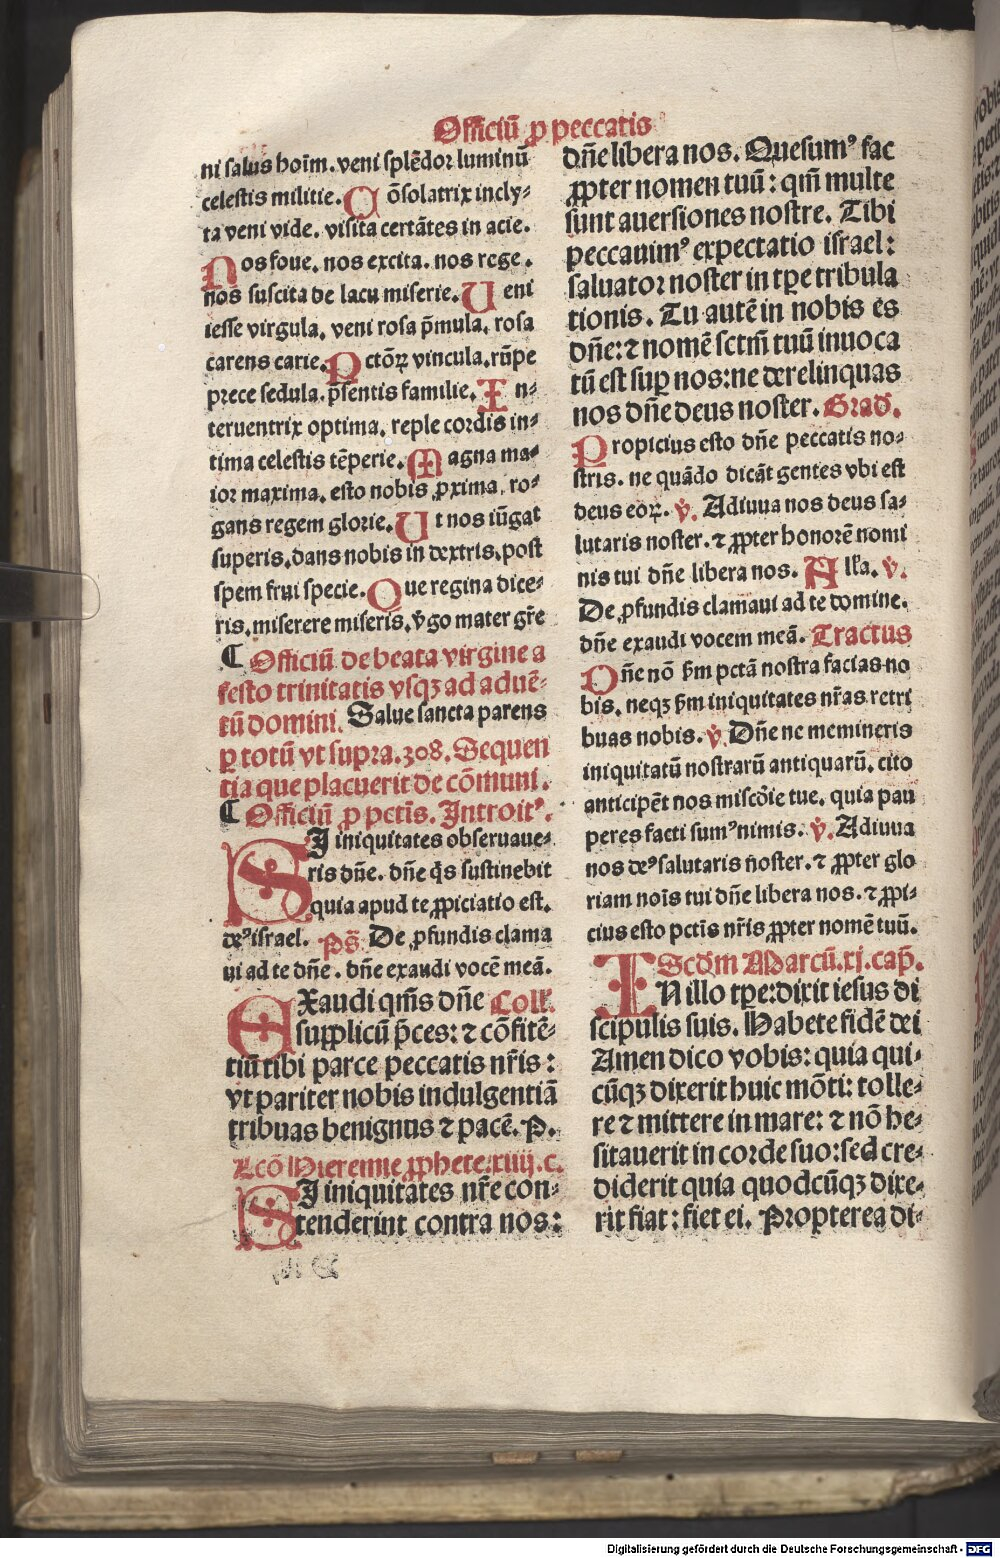 Officiū ꝓ peccatis
ni salus hoīm. veni splēdor luminū
celestis militie. Cōsolatrix incly-
ta veni vide. visita certātes in acie.
Nos foue. nos excita. nos rege.
nos suscita de lacu miserie. Ueni
iesse virgula. veni rosa p̄mula. rosa
carens carie. Pctōꝝ vincula. rūpe
prece sedula. p̄sentis familie. In-
teruentrix optima. reple cordis in-
tima celestis tēperie. Magna ma-
ior maxima. esto nobis ꝓxima. ro-
gans regem glorie. Ut nos iūgat
superis. dans nobis in dextris. post
spem frui specie. Que regina dice-
ris. miserere miseris. v̄go mater gr̄e
¶ Officiū de beata virgine a
festo trinitatis vsqꝫ ad aduē-
tū domini. Salue sancta parens
ꝑ totū vt supra. 308. Sequen
tia que placuerit de cōmuni.
¶ Officiū ꝓ pctīs. Introitꝰ.
SI iniquitates obseruaue-
ris dn̄e. dn̄e q̄s sustinebit
quia apud te ꝓpiciatio est.
deꝰ israel. Ps̄. De ꝓfundis clama
ui ad te dn̄e. dn̄e exaudi vocē meā.
EXaudi qm̄s dn̄e Coll'.
supplicū p̄ces: ⁊ cōfitē-
tiū tibi parce peccatis nr̄is:
vt pariter nobis indulgentiā
tribuas benignus ⁊ pacē. P.
Lcō Hieremie ꝓphete. xiiij. c.
SI iniquitates nr̄e con-
tenderint contra nos:
dn̄e libera nos. Quesumꝰ fac
ꝓpter nomen tuū: qm̄ multe
sunt auersiones nostre. Tibi
peccauimꝰ expectatio israel:
saluator noster in tꝑe tribula
tionis. Tu autē in nobis es
dn̄e: ⁊ nomē sctm̄ tuū inuoca
tū est suꝑ nos: ne derelinquas
nos dn̄e deus noster. Grad'.
Propicius esto dn̄e peccatis no-
stris. ne quādo dicāt gentes vbi est
deus eoꝝ. v̄. Adiuua nos deus sa-
lutaris noster. ⁊ ꝓpter honorē nomi
nis tui dn̄e libera nos. All'a. v̄.
De ꝓfundis clamaui ad te domine.
dn̄e exaudi vocem meā. Tractus
Dn̄e nō s̄m pctā nostra facias no
bis. neqꝫ s̄m iniquitates nr̄as retri
buas nobis. v̄. Dn̄e ne memineris
iniquitatū nostrarū antiquarū. cito
anticipēt nos miscōie tue. quia pau
peres facti sumꝰ nimis. v̄. Adiuua
nos deꝰ salutaris noster. ⁊ ꝓpter glo
riam noīs tui dn̄e libera nos. ⁊ ꝓpi-
cius esto pctīs nr̄is ꝓpter nomē tuū.
Scd̄m Marcū. xj. cap̄.
IN illo tꝑe: dixit iesus di
scipulis suis. Habete fidē dei
Amen dico vobis: quia qui-
cūqꝫ dixerit huic mōti: tolle-
re ⁊ mittere in mare: ⁊ nō he-
sitauerit in corde suo: sed cre-
diderit quia quodcūqꝫ dixe-
rit fiat: fiet ei. Propterea di-
Digitalisierung gefördert durch die Deutsche Forschungsgemeinschaft - DFG